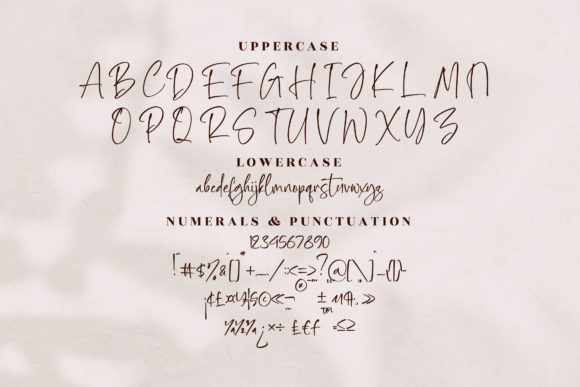 UPPERCASE
ABCDEFGHIJKLMN
OPQRSTUVWXYZ
LOWERCASE
abcdefghijklmnopqrstuvwxyz
NUMERALS & PUNCTUATION
1234567890
!"#$%&'()*+,-./:;<=>?@[\]_{|}
¡¢£¤¥¦§©«¬® ±™ »
¿×÷ £€f =≤≥